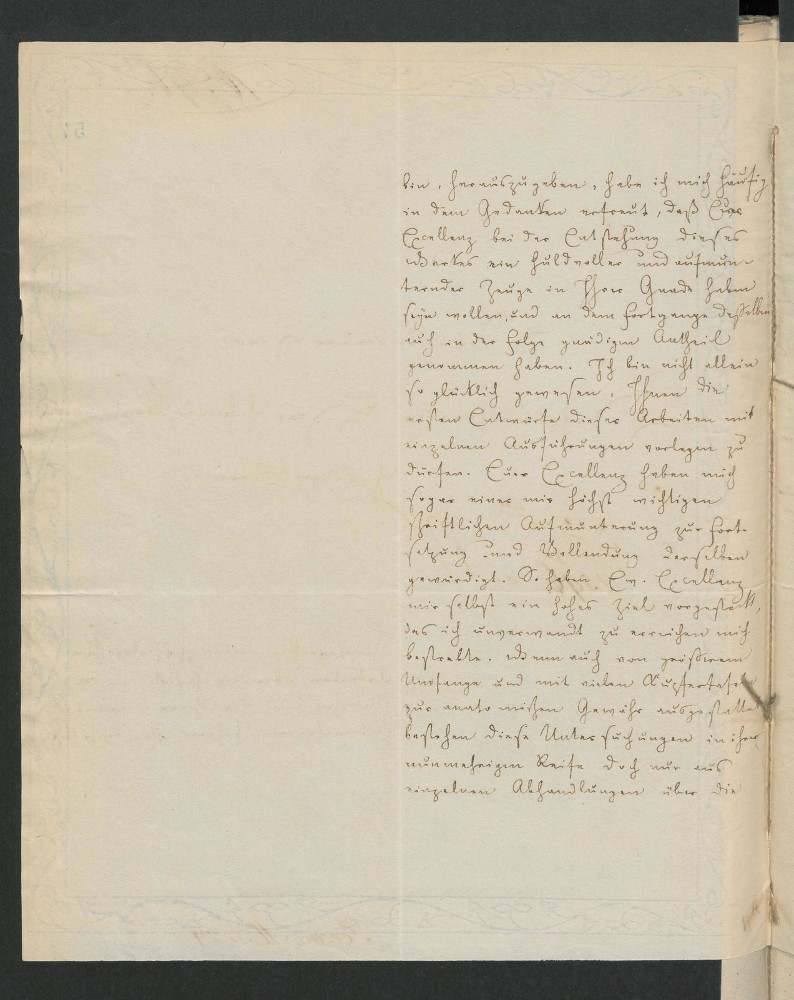 bin, herauszugeben, habe ich mich häufig
in dem Gedanken erfreut, daß Euer
Excellenz bei der Entstehung dieses
Werkes ein huldvoller und aufmun-
ternder Zeuge in Ihrer Gnade haben
seyn wollen, und an dem Fortgange desselben
auch in der Folge gnädigen Antheil
genommen haben. Ich bin nicht allein
so glücklich gewesen, Ihnen die
ersten Entwürfe dieser Arbeiten mit
einzelnen Ausführungen vorlegen zu
dürfen. Euer Excellenz haben mich
sogar einer mir höchst wichtigen
schriftlichen Aufmunterung zur Fort-
setzung und Vollendung derselben
gewürdigt. So haben Ew. Excellenz
mir selbst ein hohes Ziel vorgesteckt,
das ich unverwandt zu erreichen mich
bestrebte. Wenn auch von größerem
Umfange und mit vielen Kupfertafeln
zur anatomischen Gewähr ausgestattet
bestehen diese Untersuchungen in ihrer
nunmehrigen Reife doch nur aus
einzelnen Abhandlungen über die